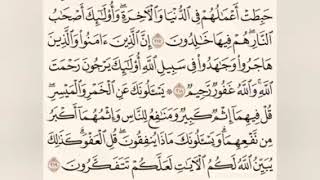 حَبِطَتْ أَعْمَـٰلُهُمْ فِى ٱلدُّنْيَا وَٱلْـَٔاخِرَةِ ۖ وَأُو۟لَـٰٓئِكَ أَصْحَـٰبُ
ٱلنَّارِ ۖ هُمْ فِيهَا خَـٰلِدُونَ ٢١٧ إِنَّ ٱلَّذِينَ ءَامَنُوا۟ وَٱلَّذِينَ
هَاجَرُوا۟ وَجَـٰهَدُوا۟ فِى سَبِيلِ ٱللَّهِ أُو۟لَـٰٓئِكَ يَرْجُونَ رَحْمَتَ
ٱللَّهِ ۚ وَٱللَّهُ غَفُورٌ رَّحِيمٌ ٢١٨ ۞ يَسْـَٔلُونَكَ عَنِ ٱلْخَمْرِ وَٱلْمَيْسِرِ ۖ
قُلْ فِيهِمَآ إِثْمٌ كَبِيرٌ وَمَنَـٰفِعُ لِلنَّاسِ وَإِثْمُهُمَآ أَكْبَرُ
مِن نَّفْعِهِمَا ۗ وَيَسْـَٔلُونَكَ مَاذَا يُنفِقُونَ قُلِ ٱلْعَفْوَ ۗ كَذَٰلِكَ
يُبَيِّنُ ٱللَّهُ لَكُمُ ٱلْـَٔايَـٰتِ لَعَلَّكُمْ تَتَفَكَّرُونَ ٢١٩